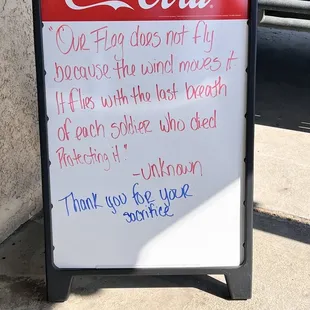 Cola
"Our Flag does not fly
because the wind moves it
It flies with the last breath
of each soldier who died
Protecting it."
-unknown
Thank you for your
sacrifice